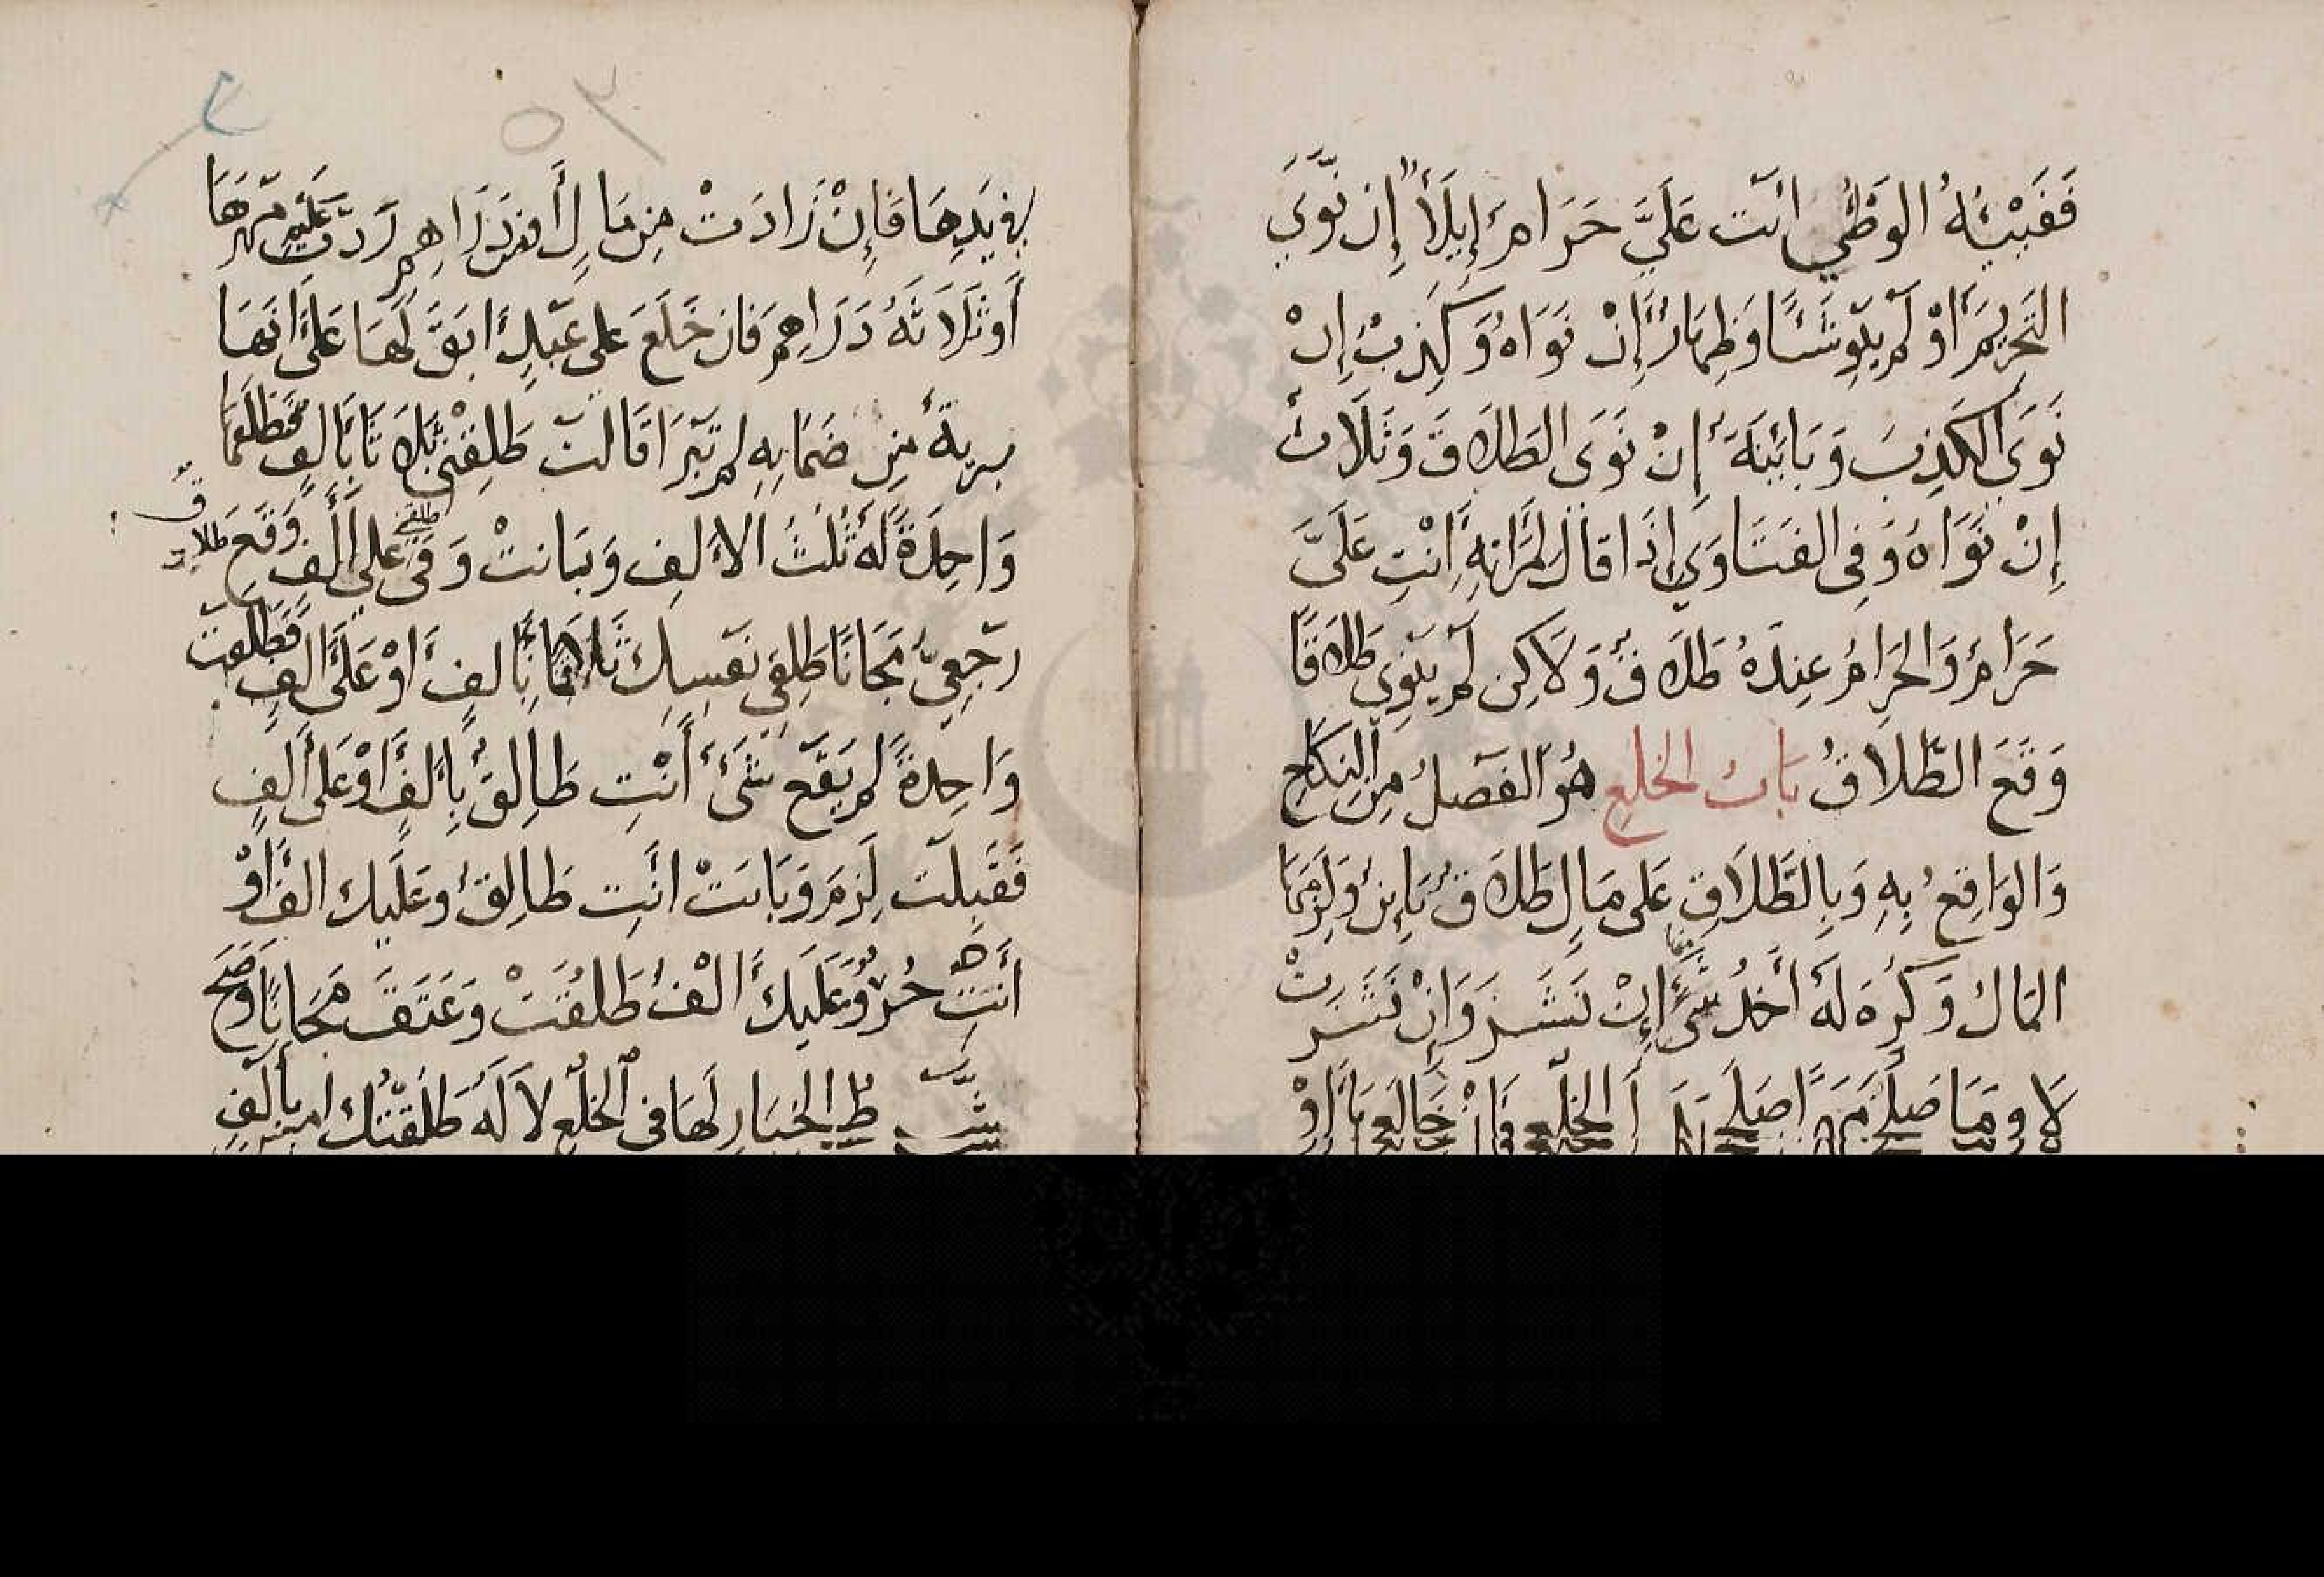 فَفَيْئُهُ الوَطْئِ انت عَلَيَّ حَرَامٌ إِيلَاً إِن نَوَىَ
التَحْرِيمَ أَوْ لَم يَنوِ شَئًا وَظِهَارٌ إِنْ نَوَاهُ وَكَذِبٌ إِنْ
نَوَى الكَذِبَ وَبَائِنَةٌ إِنْ نَوَى الطَلَاقَ وَثَلَاثٌ
إِنْ نَوَاهُ وَفِى الفَتَاوَي إِذَا قَالَ لِمَرَاتِهِ أَنْتِ عَلَىَّ
حَرَامٌ وَالحَرَامُ عِندَهُ طَلَاقٌ وَلَاكِن لَم يَنوِي طَلَاقًا
وَقَعَ الطَّلَاقُ بَابُ الخلعِ هُوَ الفَصلُ مِنَ النِكَاحِ
وَالوَاقِعُ بِهِ وَبِالطَّلَاقِ عَلى مَالٍ طَلَاقٌ بَاينٌ وَلَزِمَهَا
المَالُ وَكُرِهَ لَهُ أَخذُ شَئٍ إِنْ نَشَزَ وَإِنْ نَشَزَتْ
لَا وَمَا صَلحَ مَهرًا صَلحَ بَدَلَ الخلعِ فَإِنْ خَالَعَهَا أَوْ
بِهِ يَدِهَا فَإِنْ زَادَتْ مِن مَالٍ أَو مِن دَرَاهِمَ رَدَّت عَلَيْهِ مَهرَهَا
أَو ثَلَاثَةُ دَرَاهِمَ فَان خَلَعَ عَلى عَبدٍ ابَقَ لَهَا عَلَى أَنهَا
بَرِيةٌ مِن ضَمَانِهِ لَم تَبرَا قَالَت طَلِقنِى ثَلَاثَا بِأَلفٍ فَطَلَقَهَا
وَاحِدَةً لَهُ ثُلثُ الأَلفِ وَبَانتْ وَفي عَلى أَلفٍ وَقَعَ طلاق
رَجعِيٌّ مَجَانًا طَلِقِى نَفسِكِ ثَلَاثًا بِأَلفٍ أَوْ عَلَى أَلفٍ فَطَلَقَت
وَاحِدَةً لَم يَقَع شَئٌ أَنْتِ طَالِقٌ بِأَلفٍ أَوْ عَلى أَلفٍ
فَقَبِلَت لَزِمَ وَبَانَتْ انتِ طَالِقٌ وعَلَيكِ الفٌ أَوْ
أَنتَ حُرٌّ وَعَلَيكَ أَلْفٌ طَلُقَتْ وَعَتَقَ مَجَانًا وَصَحَ
شَرطُ الخِيَارِ لَهَا فى الخلعِ لَا لَهُ طَلَقتُكِ امس بِأَلفٍ